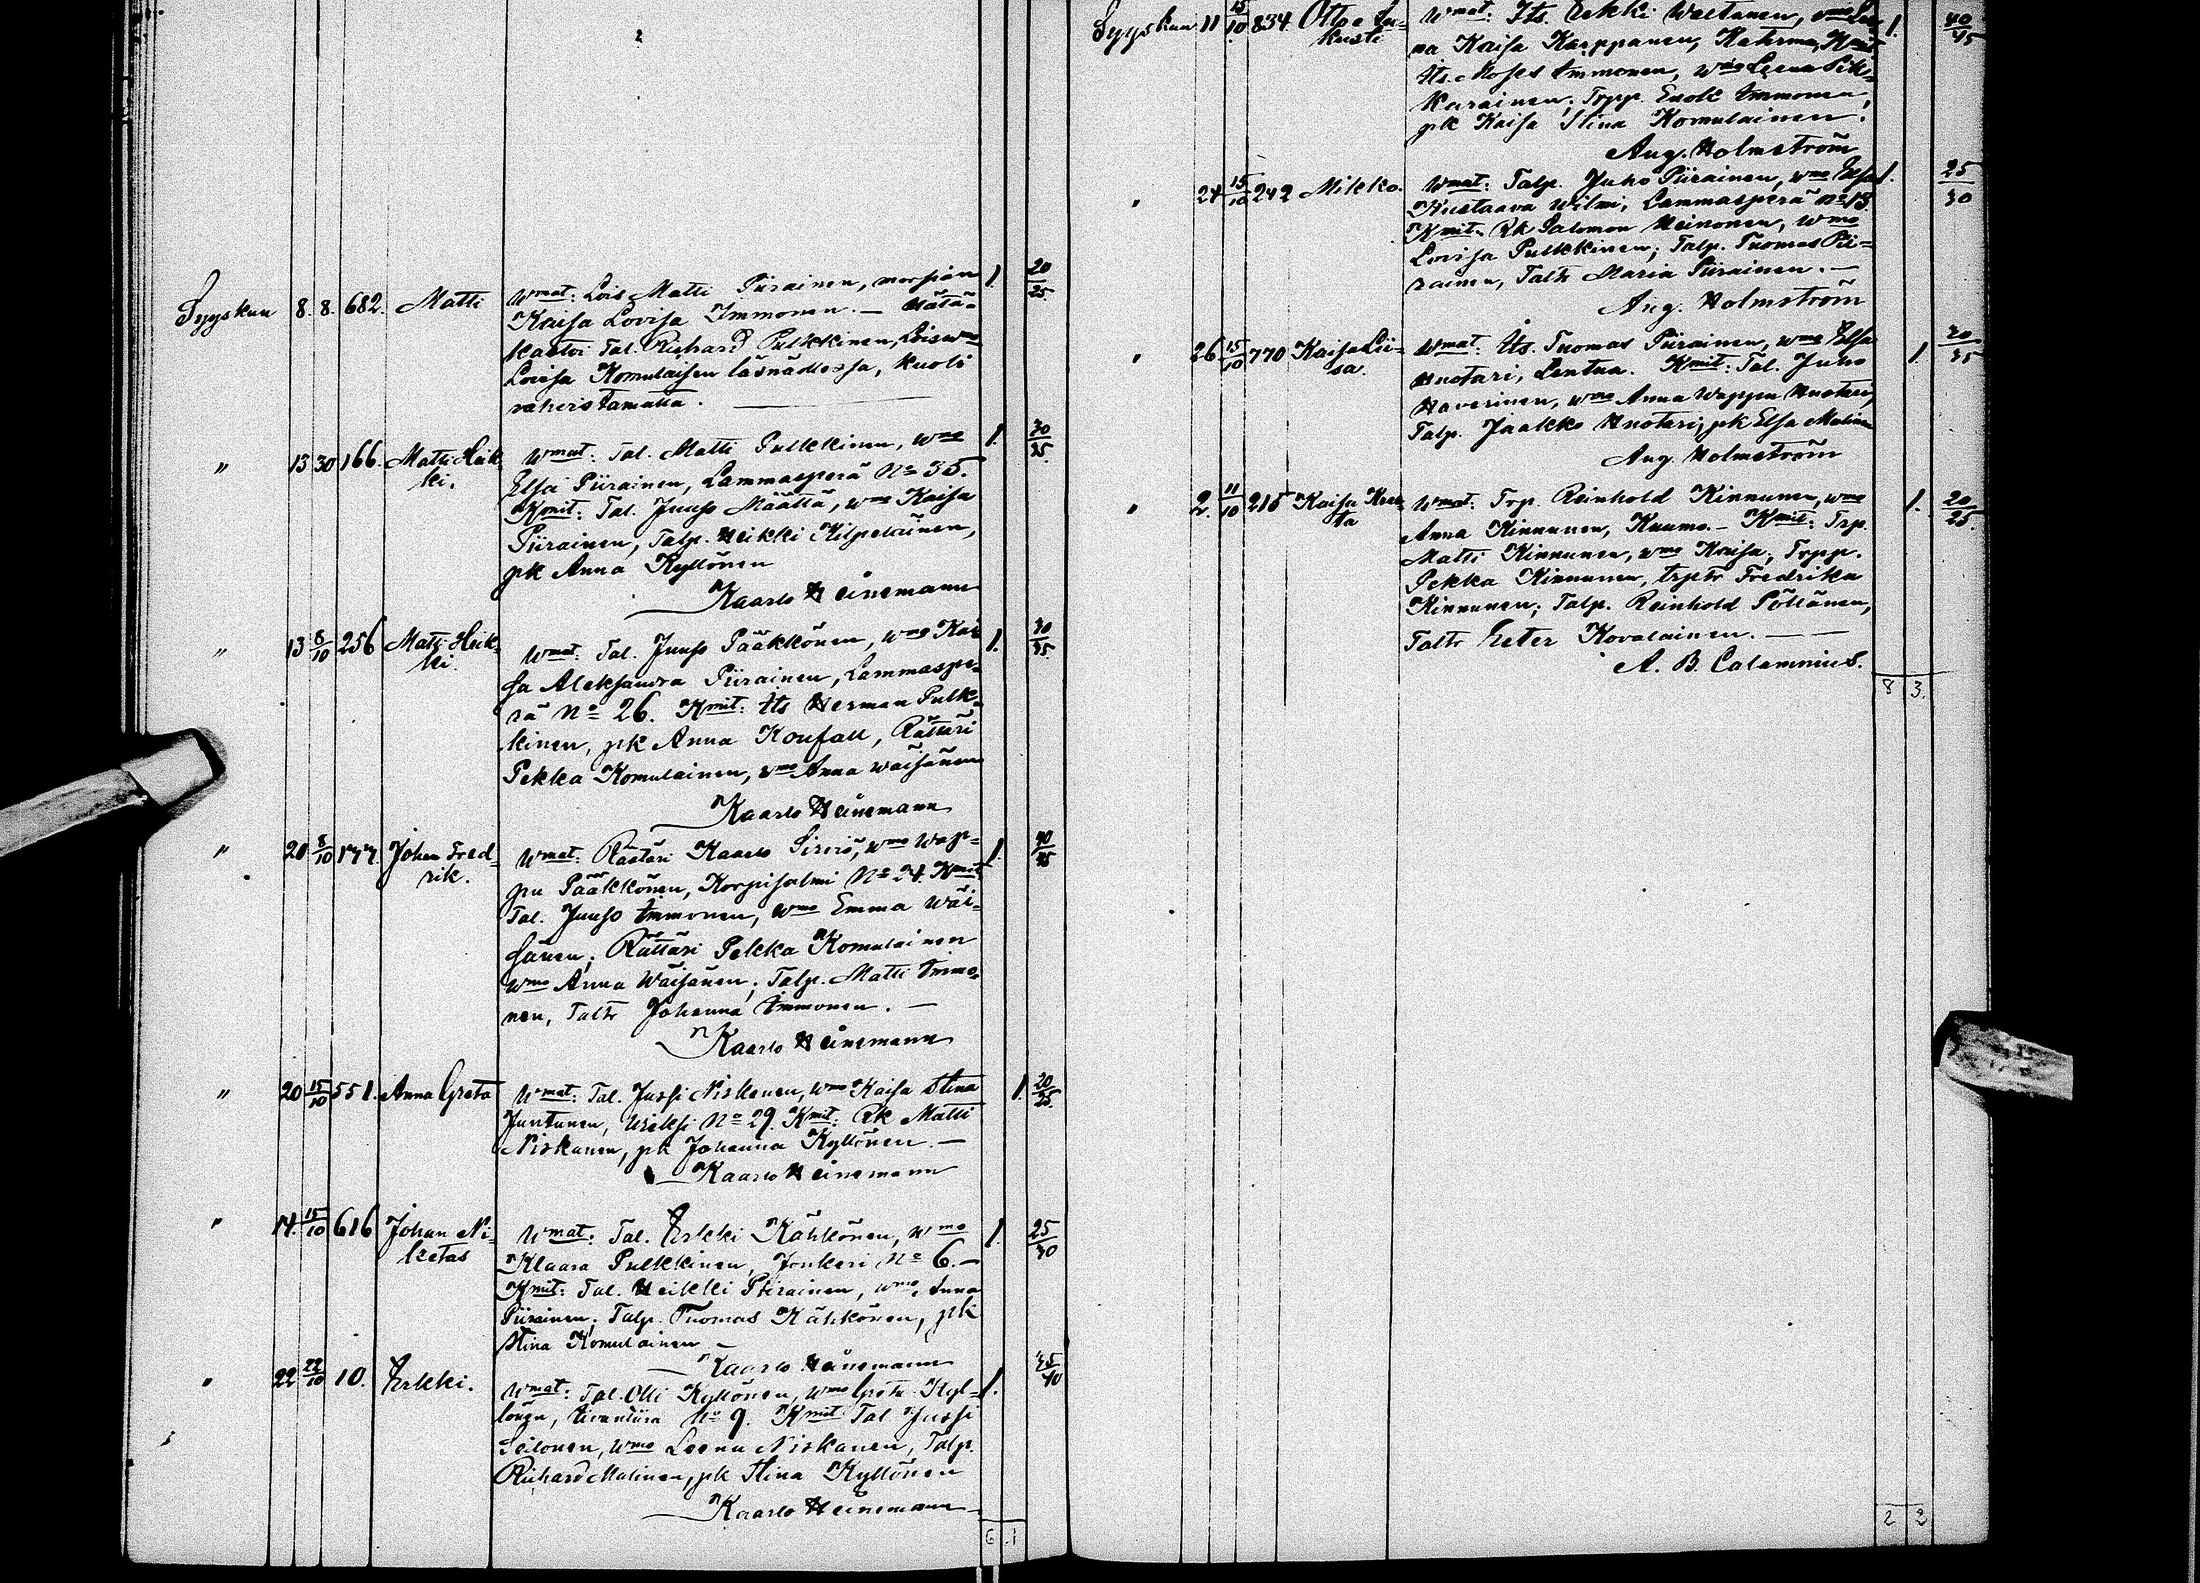 Syyskuu 8. 8. 682. Matti Wmat: Lois Matti Piirainen, morsian 1. 20/25
Kaisa Lovisa Immonen. — Hätä-
kastoi Tal. Richard Pulkkinen, Loiswmo
Lovisa Komulaisen läsnäollessa, kuoli
vahvistamatta.
" 13 30 166. Matti Heik- Wmat: Tal. Matti Pulkkinen, wmo 1. 30/35
ki. Elsa Piirainen, Lammasperä No 35.
Kmit: Tal. Juuso Määttä, wmo Kaisa
Piirainen, Talp. Heikki Kilpeläinen,
pk Anna Kyllönen
Kaarlo Heinemann
" 13 8/10 256 Matti Heik- Wmat: Tal. Juuso Pääkkönen, wmo Kai- 1. 30/35
ki. sa Aleksandra Piirainen, Lammaspe-
rä No 26. Kmit: Its Herman Pulk-
kinen, pk Anna Koufall, Rättäri
Pekka Komulainen, wmo Anna Wäisänen
Kaarlo Heinemann
" 20 8/10 177. Johan Fred- Wmat: Räätäri Kaarlo Sirviö, wmo Wap- 1. 40/45
rik. pu Pääkkönen, Korpisalmi No 24. Kmit
Tal. Juuso Immonen, wmo Emma Wäi-
sänen; Rättäri Pekka Komulainen
wmo Anna Wäisänen; Talp. Matti Immo-
nen, Taltr Johanna Immonen. —
Kaarlo Heinemann
" 20 15/10 551. Anna Greta Wmat: Tal. Jussi Niskanen, wmo Kaisa Stina 1. 20/25
Juntunen, Wiiksi No 29. Kmit: Rk Matti
Niskanen, pk Johanna Kyllönen. —
Kaarlo Heinemann
" 14. 15/10 616 Johan Ni- Wmat: Tal. Erkki Kähkönen, wmo 1. 25/30
ketas Klaara Pulkkinen, Jonkeri No 6. —
Kmit: Tal. Heikki Piirainen, wmo Anna
Piirainen; Talp. Tuomas Kähkönen, pk
Stina Komulainen —
Kaarlo Heinemann
" 22 22/10 10. Erkki. Wmat: Tal. Olli Kyllönen, wmo Greta Kyl- 1. 35/40
lönen, No 9. Kmit Tal Jussi
Seilonen, wmo Leena Niskanen, Talp.
Richard Malinen, pk Stina Kyllönen
Kaarlo Heinemann
6 1
Syyskuu 11 15/10 834 Otto Au- Wmat: Its. Erkki Wästanen, wmo Lee- 1. 40/45
kusti na Kaisa Karppanen, Kuhmo, Kmit
Its. Moses Immonen, wmo Leena Pik-
karainen; Trpp. Enok Immonen,
pk Kaisa Stina Komulainen.
Aug. Holmström
" 24 15/10 242 Mikko. Wmat: Talp. Juho Piirainen, wmo Elsa 1. 25/30
Kustaava Wilmi, Lammasperä No 13.
Kmit. Rk Salomon Heinonen, wmo
Lovisa Pulkkinen; Talp. Tuomas Pii-
rainen, Taltr Maria Piirainen. —
Aug. Holmström
" 26 15/10 770 Kaisa Lii- Wmat: Its. Tuomas Piirainen, wmo Elsa 1. 30/35
sa. Huotari, Lentua. Kmit: Tal. Juho
Haverinen, wmo Anna Wappu Huotari,
Talp. Jaakko Huotari, pk Elsa Malinen
Aug. Holmström
" 2. 11/10 215 Kaisa Ree- Wmat: Trp. Reinhold Kinnunen, wmo 1. 20/25
ta Anna Kinnunen, Kuumo. — Kmit: Trp.
Matti Kinnunen, wmo Kaisa; Trpp.
Pekka Kinnunen, trptr Fredrika
Kinnunen; Talp. Reinhold Pöllänen,
Taltr Ester Kovalainen. —
A. B. Calamnius.
8 3.
2 2